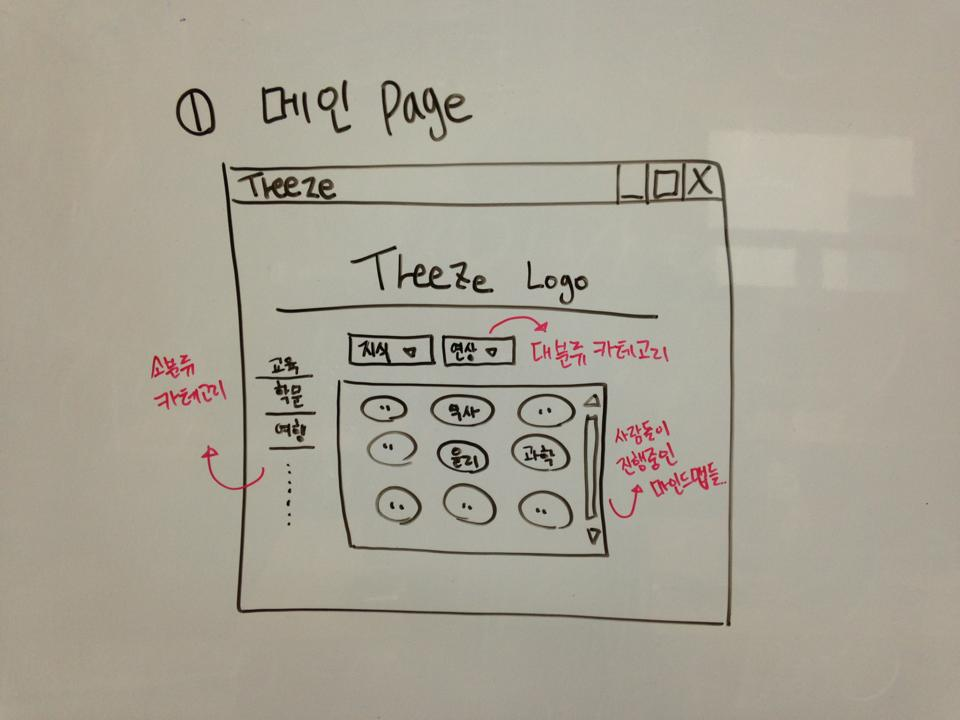 ① 메인 Page
Treeze
Treeze Logo
지식 연상
대분류 카테고리
소분류
카테고리
교육
학문
여행
역사
윤리 과학
사람들이
진행중인
마인드맵들..